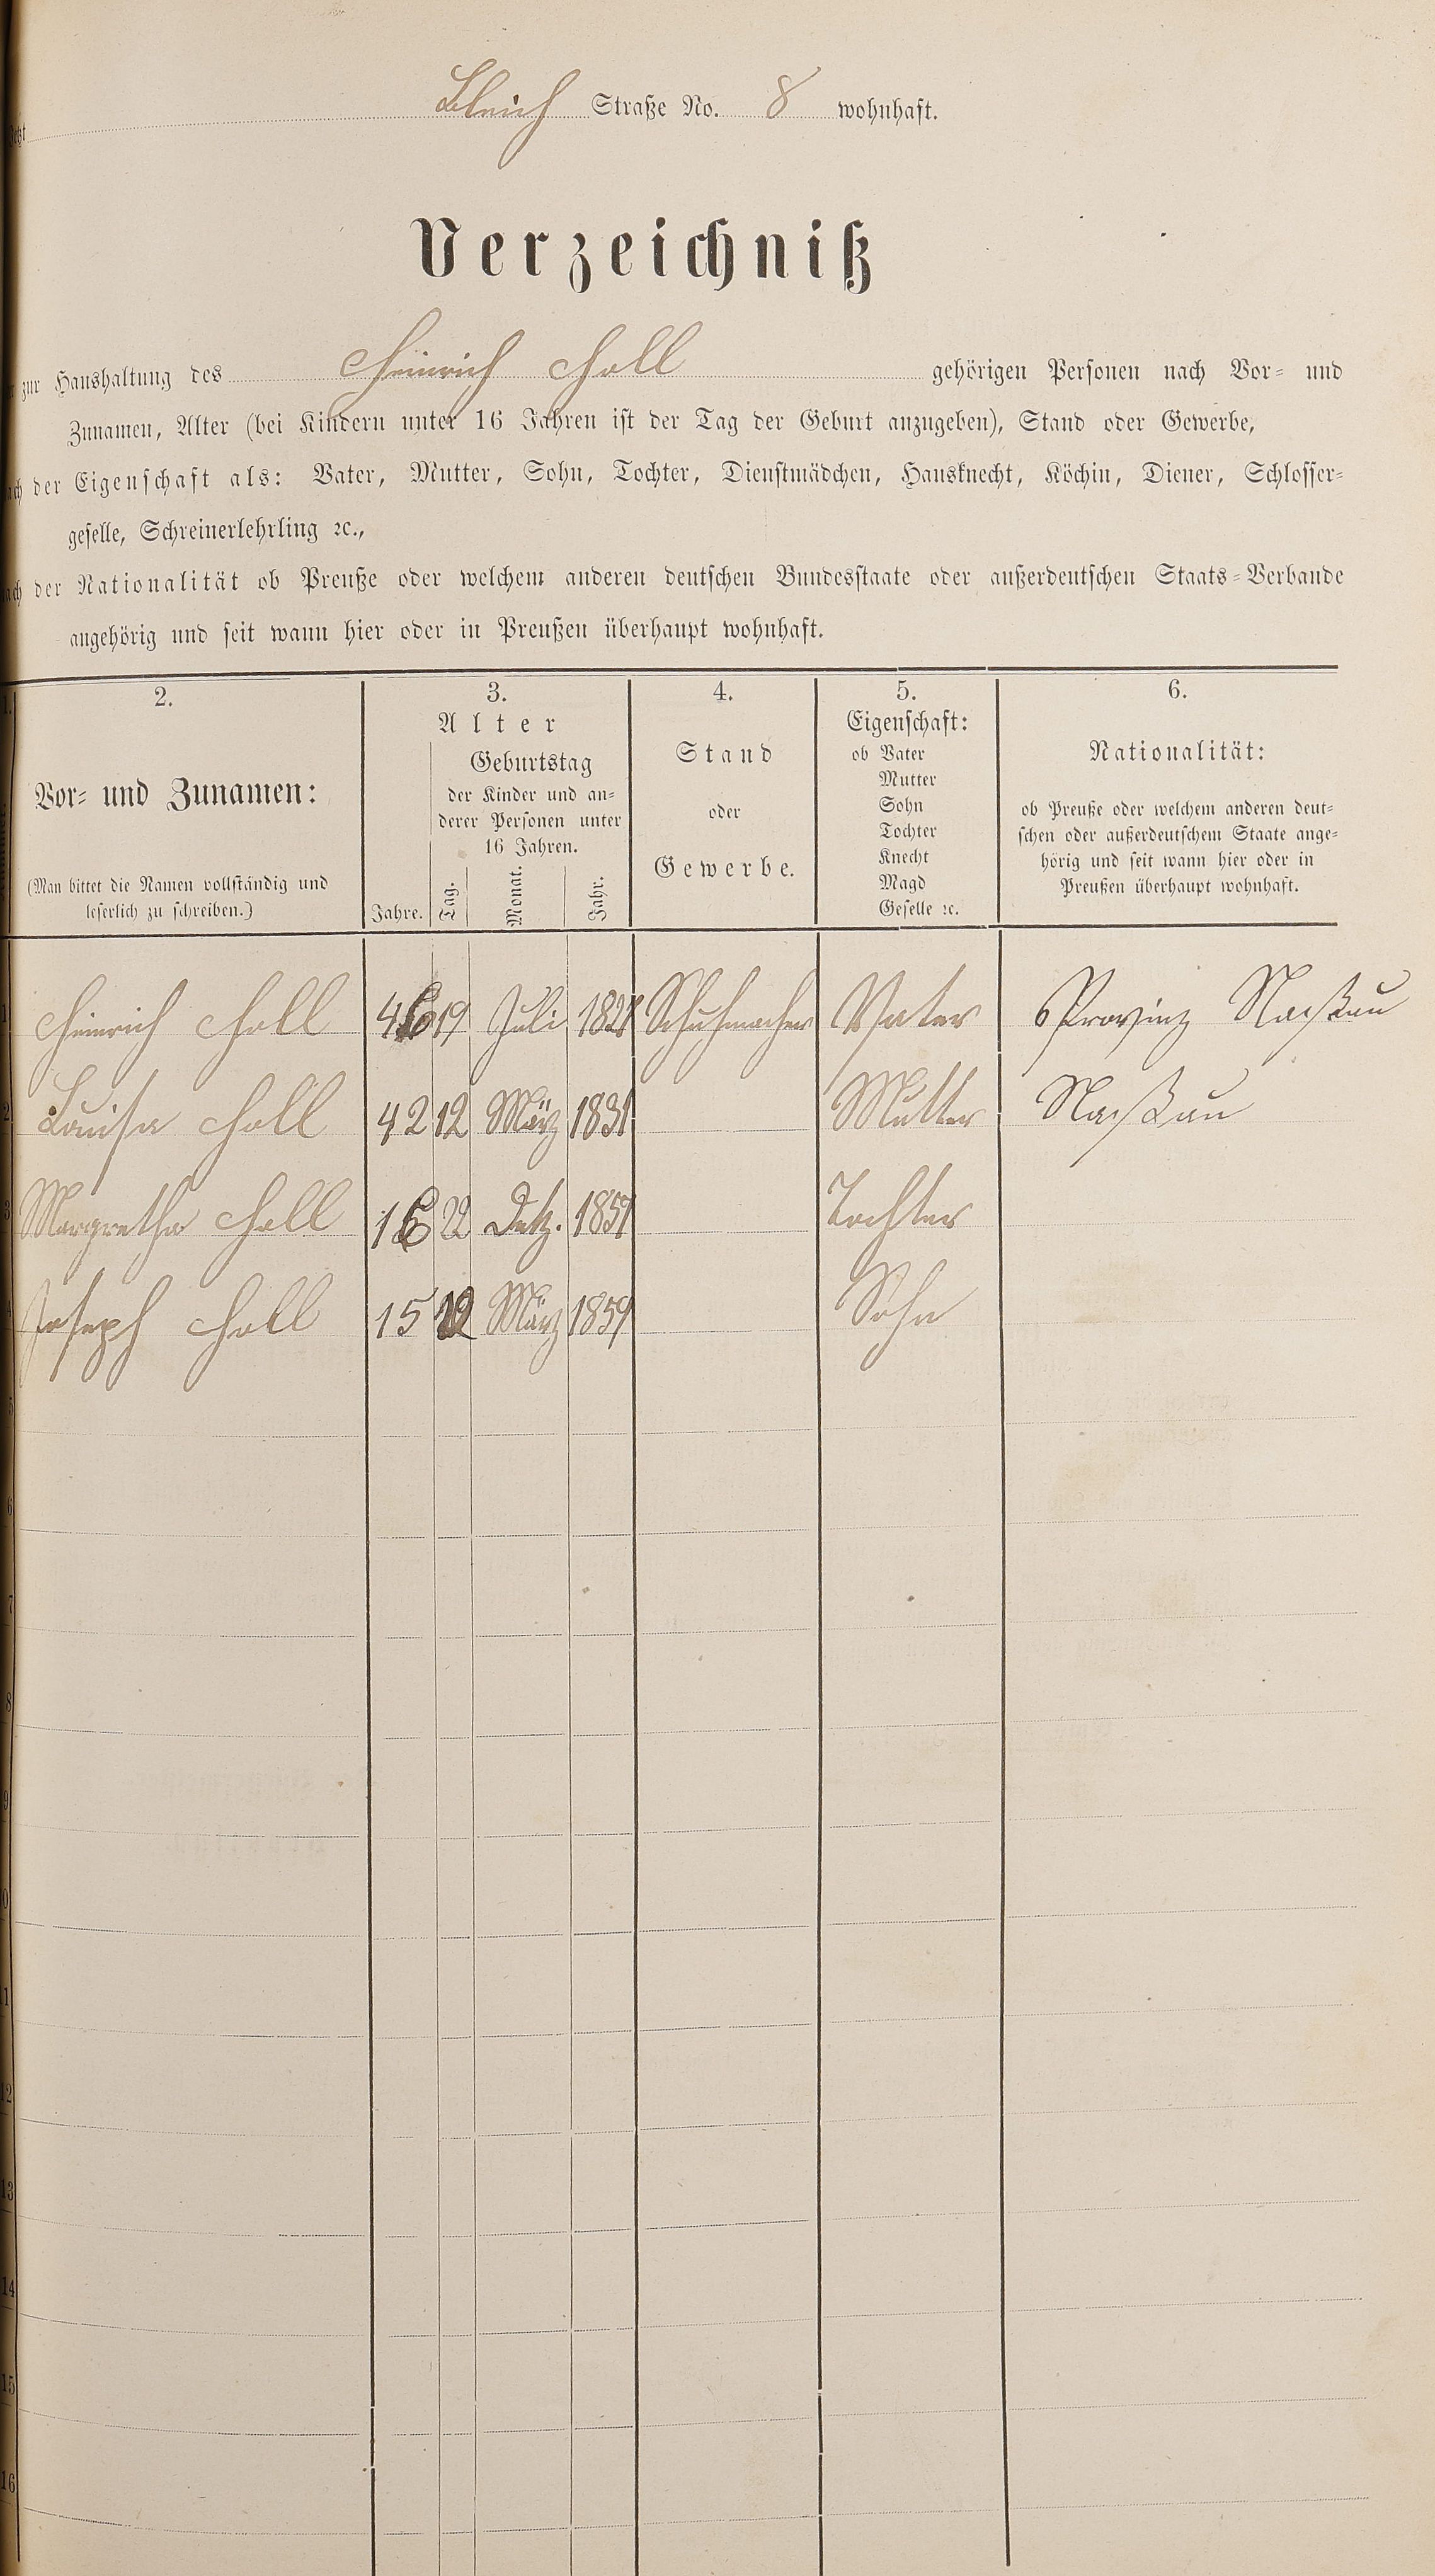 Bleich Straße No. 8 wohnhaft.
Verzeichniß
zur Haushaltung des Heinrich Holl gehörigen Personen nach Vor- und
Zunamen, Alter (bei Kindern unter 16 Jahren ist der Tag der Geburt anzugeben), Stand oder Gewerbe,
der Eigenschaft als: Vater, Mutter, Sohn, Tochter, Dienstmädchen, Hausknecht, Köchin, Diener, Schlosser-
geselle, Schreinerlehrling ꝛc.,
der Nationalität ob Preuße oder welchem anderen deutschen Bundesstaate oder außerdeutschen Staats-Verbande
angehörig und seit wann hier oder in Preußen überhaupt wohnhaft.
2.
Vor- und Zunamen:
(Man bittet die Namen vollständig und
leserlich zu schreiben.)
3.
Alter
Jahre.
Geburtstag
der Kinder und an-
derer Personen unter
16 Jahren.
Tag. Monat. Jahr.
4.
Stand
oder
Gewerbe.
5.
Eigenschaft:
ob Vater
Mutter
Sohn
Tochter
Knecht
Magd
Geselle ꝛc.
6.
Nationalität:
ob Preuße oder welchem anderen deut-
schen oder außerdeutschem Staate ange-
hörig und seit wann hier oder in
Preußen überhaupt wohnhaft.
1 Heinrich Holl 46 19 Juli Schuhmacher Vater Provinz Naßau
2 Louisa Holl 42 12 März 1831 Mutter Naßau
3 Margretha Holl 16 22 Detz. 1857 Tochter
4 Joseph Holl 15 März 1859 Sohn
5
6
7
8
9
0
1
12
13
14
15
16